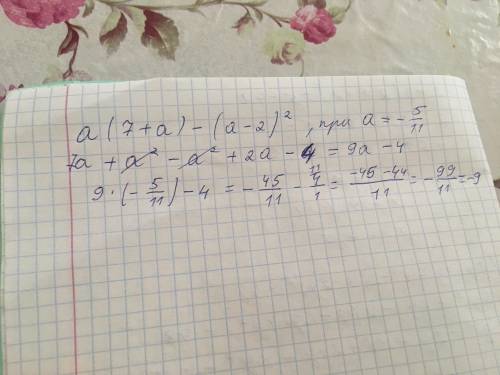 a (7+a) - (a-2)² , при a = -5/11
7a + a² - a² + 2a - 4 = 9a - 4
9 · (-5/11) - 4 = -45/11 - 4/1 ¹¹ = (-45-44)/11 = -99/11 = -9